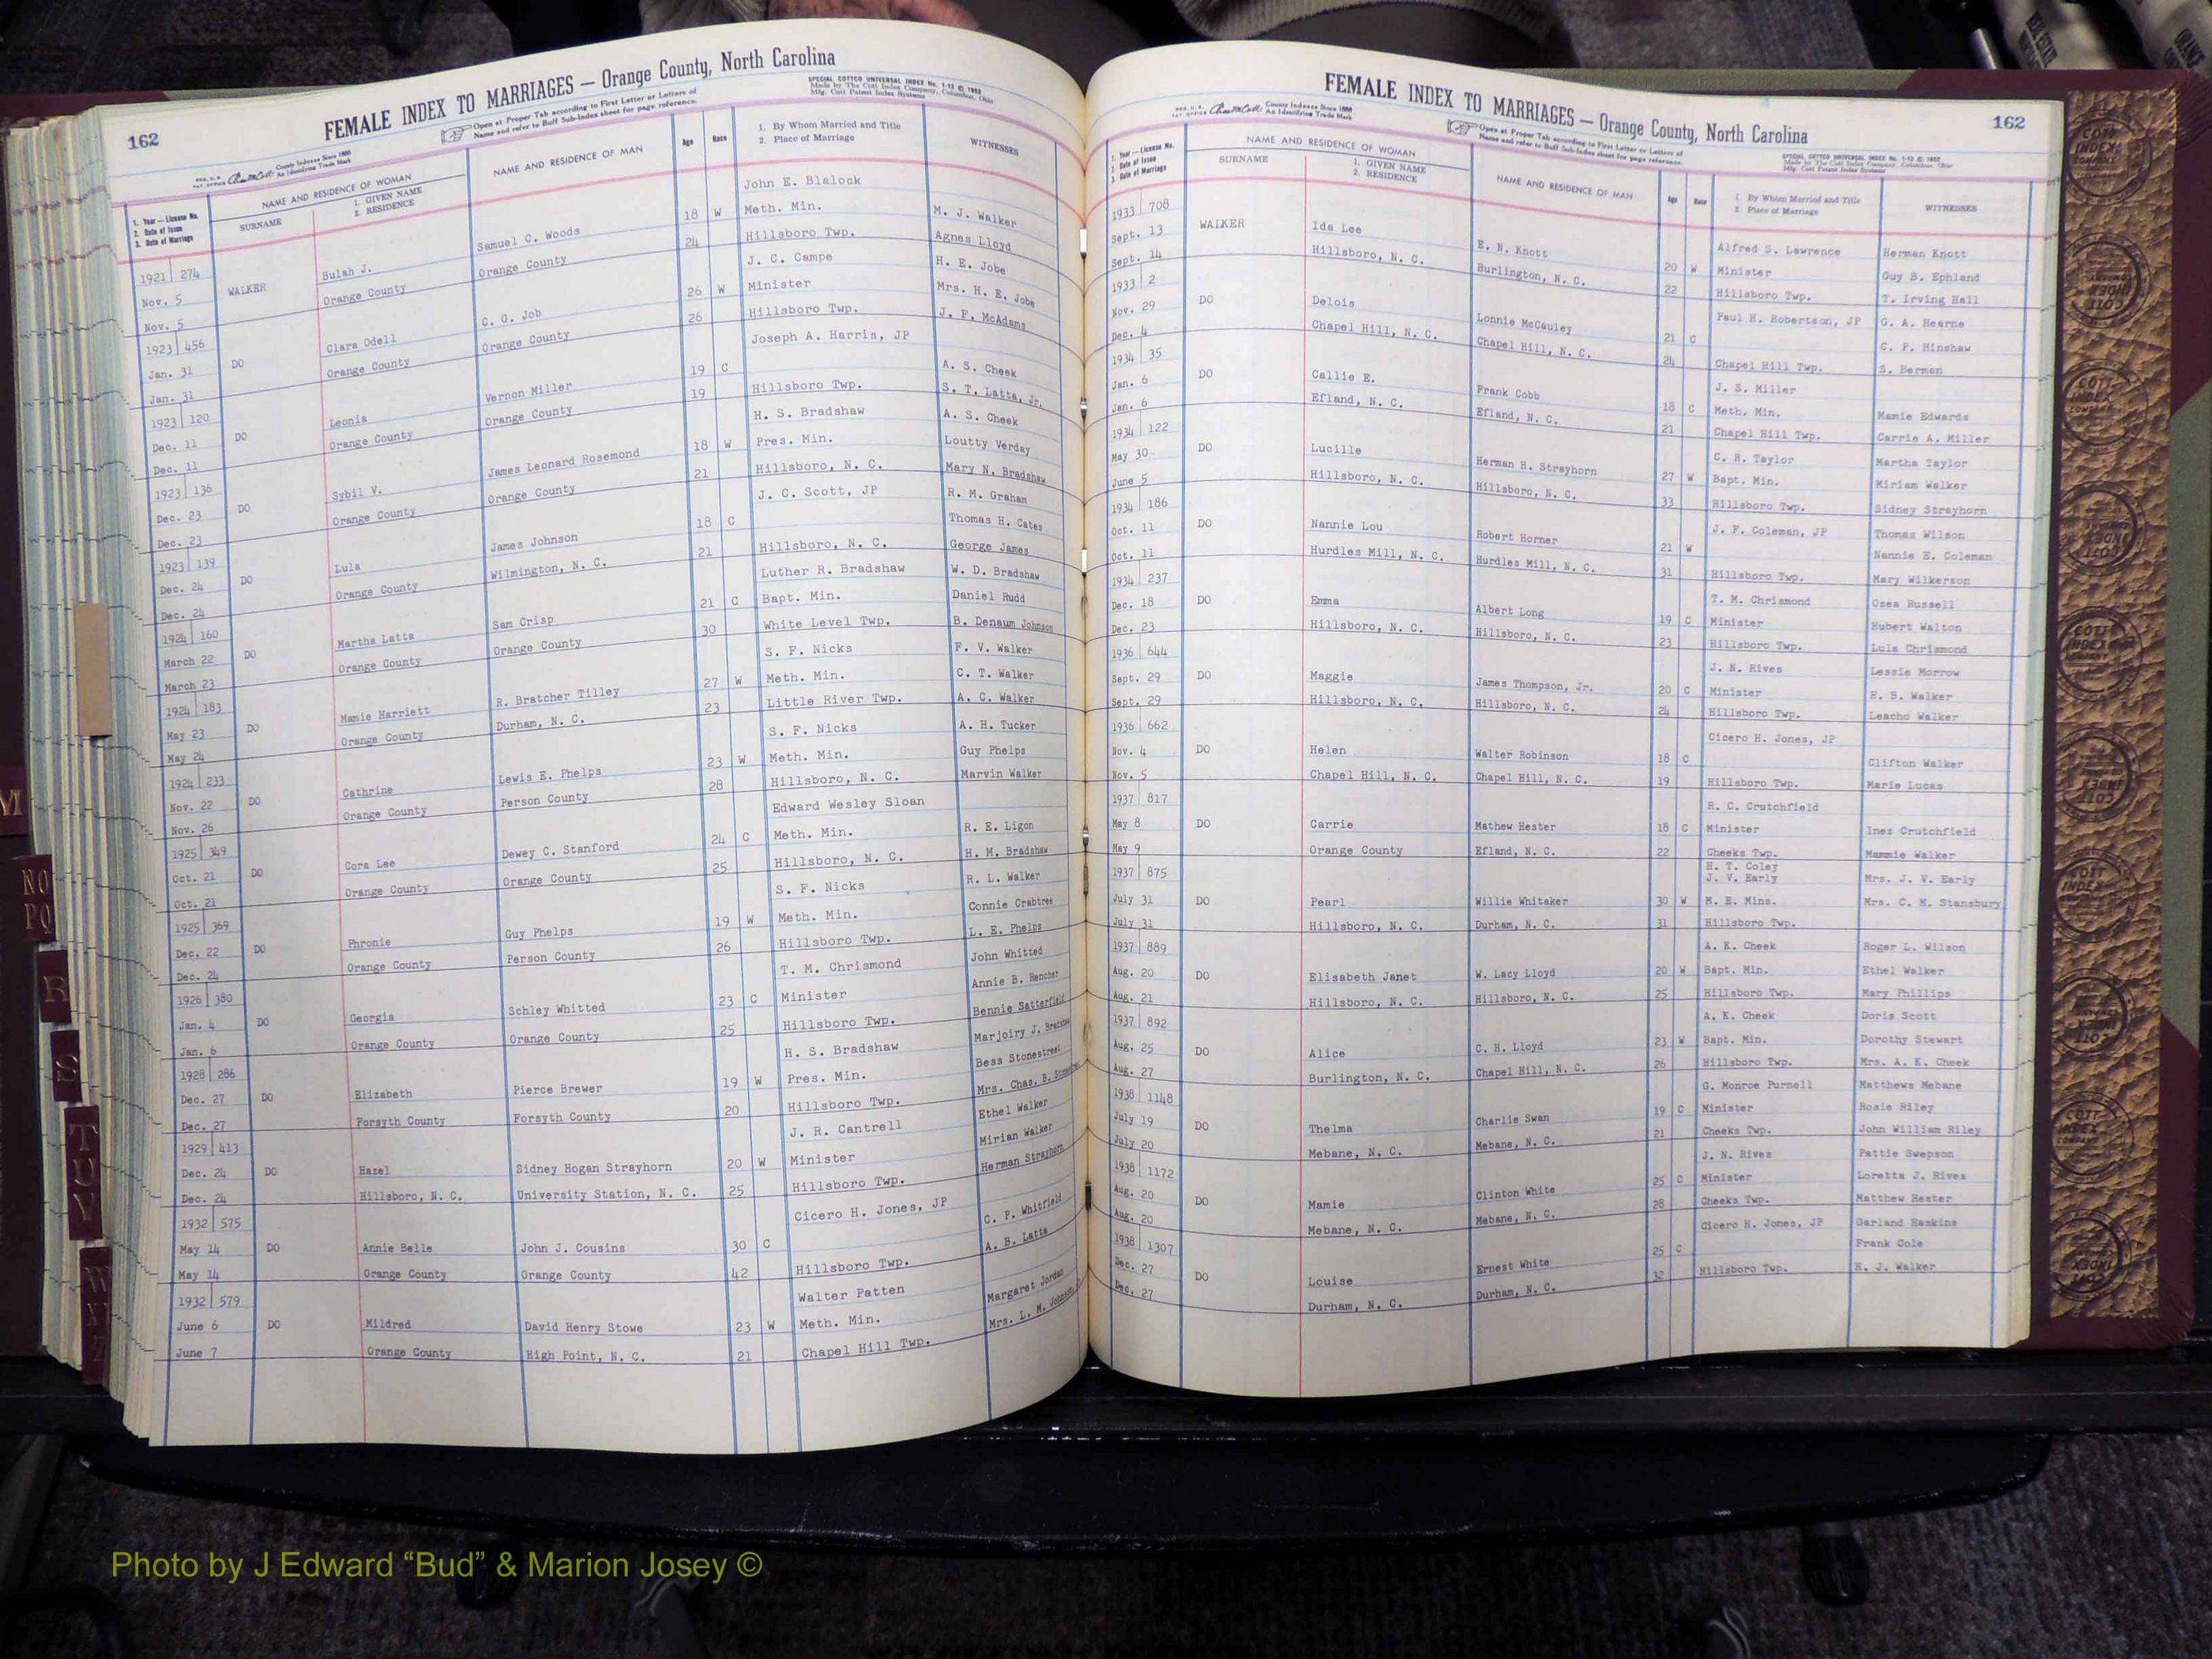 162
FEMALE INDEX TO MARRIAGES — Orange County, North Carolina
Open at Proper Tab according to First Letter or Letters of
Name and refer to Buff Sub-Index sheet for page reference.
SPECIAL COTTCO UNIVERSAL INDEX No. 1-12 © 1952
Made by The Cott Index Company, Columbus, Ohio
Mfg. Cott Patent Index Systems
County Indexes Since 1888
An Identifying Trade Mark
1. Year — License No.
2. Date of Issue
3. Date of Marriage
NAME AND RESIDENCE OF WOMAN
SURNAME
1. GIVEN NAME
2. RESIDENCE
NAME AND RESIDENCE OF MAN
Age
Race
1. By Whom Married and Title
2. Place of Marriage
WITNESSES
1921 274 John E. Blalock M. J. Walker
Nov. 5 WALKER Bulah J. Samuel C. Woods 18 W Meth. Min. Agnes Lloyd
Nov. 5 Orange County Orange County 24 Hillsboro Twp. H. E. Jobe
1923 456 J. C. Campe Mrs. H. E. Jobe
Jan. 31 DO Clara Odell C. G. Job 26 W Minister J. F. McAdams
Jan. 31 Orange County Orange County 26 Hillsboro Twp.
1923 120 Joseph A. Harris, JP A. S. Cheek
Dec. 11 DO Leonia Vernon Miller 19 C S. T. Latta, Jr.
Dec. 11 Orange County Orange County 19 Hillsboro Twp. A. S. Cheek
1923 136 H. S. Bradshaw Loutty Verday
Dec. 23 DO Sybil V. James Leonard Rosemond 18 W Pres. Min. Mary N. Bradshaw
Dec. 23 Orange County Orange County 21 Hillsboro, N. C. R. M. Graham
1923 139 J. C. Scott, JP Thomas H. Cates
Dec. 24 DO Lula James Johnson 18 C George James
Dec. 24 Orange County Wilmington, N. C. 21 Hillsboro, N. C. W. D. Bradshaw
1924 160 Luther R. Bradshaw Daniel Rudd
March 22 DO Martha Latta Sam Crisp 21 C Bapt. Min. B. Denaum Johnson
March 23 Orange County Orange County 30 White Level Twp. F. V. Walker
1924 183 S. F. Nicks C. T. Walker
May 23 DO Mamie Harriett R. Bratcher Tilley 27 W Meth. Min. A. C. Walker
May 24 Orange County Durham, N. C. 23 Little River Twp. A. H. Tucker
1924 233 S. F. Nicks Guy Phelps
Nov. 22 DO Cathrine Lewis E. Phelps 23 W Meth. Min. Marvin Walker
Nov. 26 Orange County Person County 28 Hillsboro, N. C.
1925 349 Edward Wesley Sloan R. E. Ligon
Oct. 21 DO Cora Lee Dewey C. Stanford 24 C Meth. Min. H. M. Bradshaw
Oct. 21 Orange County Orange County 25 Hillsboro, N. C. R. L. Walker
1925 369 S. F. Nicks Connie Crabtree
Dec. 22 DO Phronie Guy Phelps 19 W Meth. Min. L. E. Phelps
Dec. 24 Orange County Person County 26 Hillsboro Twp. John Whitted
1926 380 T. M. Chrismond Annie B. Hencher
Jan. 4 DO Georgia Schley Whitted 23 C Minister Bennie Satterfield
Jan. 6 Orange County Orange County 25 Hillsboro Twp. Marjoiry J. Bradshaw
1928 286 H. S. Bradshaw Bess Stonestreet
Dec. 27 DO Elizabeth Pierce Brewer 19 W Pres. Min. Mrs. Chas. B.
Dec. 27 Forsyth County Forsyth County 20 Hillsboro Twp. Ethel Walker
1929 413 J. R. Cantrell Mirian Walker
Dec. 24 DO Hazel Sidney Hogan Strayhorn 20 W Minister Herman Strayhorn
Dec. 24 Hillsboro, N. C. University Station, N. C. 25 Hillsboro Twp.
1932 575 Cicero H. Jones, JP C. P. Whitfield
May 14 DO Annie Belle John J. Cousins 30 C A. B. Latta
May 14 Orange County Orange County 42 Hillsboro Twp.
1932 579 Walter Patten Margaret Jordan
June 6 DO Mildred David Henry Stowe 23 W Meth. Min. Mrs. L. M.
June 7 Orange County High Point, N. C. 21 Chapel Hill Twp.
162
FEMALE INDEX TO MARRIAGES — Orange County, North Carolina
County Indexes Since 1888
An Identifying Trade Mark
Open at Proper Tab according to First Letter or Letters of
Name and refer to Buff Sub-Index sheet for page reference.
SPECIAL COTTCO UNIVERSAL INDEX No. 1-12 © 1952
Made by The Cott Index Company, Columbus, Ohio
Mfg. Cott Patent Index Systems
1. Year — License No.
2. Date of Issue
3. Date of Marriage
NAME AND RESIDENCE OF WOMAN
SURNAME
1. GIVEN NAME
2. RESIDENCE
NAME AND RESIDENCE OF MAN
Age
Race
1. By Whom Married and Title
2. Place of Marriage
WITNESSES
1933 708 Alfred S. Lawrence Herman Knott
Sept. 13 WALKER Ida Lee E. N. Knott 20 W Minister Guy B. Ephland
Sept. 14 Hillsboro, N. C. Burlington, N. C. 22 Hillsboro Twp. T. Irving Hall
1933 2 Paul H. Robertson, JP G. A. Hearne
Nov. 29 DO Delois Lonnie McCauley 21 C C. P. Hinshaw
Dec. 4 Chapel Hill, N. C. Chapel Hill, N. C. 24 Chapel Hill Twp. S. Berman
1934 35 J. S. Miller
Jan. 6 DO Callie E. Frank Cobb 18 C Meth. Min. Mamie Edwards
Jan. 6 Efland, N. C. Efland, N. C. 21 Chapel Hill Twp. Carrie A. Miller
1934 122 C. R. Taylor Martha Taylor
May 30 DO Lucille Herman H. Strayhorn 27 W Bapt. Min. Miriam Walker
June 5 Hillsboro, N. C. Hillsboro, N. C. 33 Hillsboro Twp. Sidney Strayhorn
1934 186 J. F. Coleman, JP Thomas Wilson
Oct. 11 DO Nannie Lou Robert Horner 21 W Nannie E. Coleman
Oct. 11 Hurdles Mill, N. C. Hurdles Mill, N. C. 31 Hillsboro Twp. Mary Wilkerson
1934 237 T. M. Chrismond Osea Russell
Dec. 18 DO Emma Albert Long 19 C Minister Hubert Walton
Dec. 23 Hillsboro, N. C. Hillsboro, N. C. 23 Hillsboro Twp. Lula Chrismond
1936 644 J. N. Rives Lessie Morrow
Sept. 29 DO Maggie James Thompson, Jr. 20 C Minister R. B. Walker
Sept. 29 Hillsboro, N. C. Hillsboro, N. C. 24 Hillsboro Twp. Leacho Walker
1936 662 Cicero H. Jones, JP
Nov. 4 DO Helen Walter Robinson 18 C Clifton Walker
Nov. 5 Chapel Hill, N. C. Chapel Hill, N. C. 19 Hillsboro Twp. Marie Lucas
1937 817 R. C. Crutchfield
May 8 DO Carrie Mathew Hester 18 C Minister Inez Crutchfield
May 9 Orange County Efland, N. C. 22 Cheeks Twp. Mammie Walker
H. T. Coley
1937 875 J. V. Early Mrs. J. V. Early
July 31 DO Pearl Willie Whitaker 30 W M. E. Mins. Mrs. C. M. Stansbury
July 31 Hillsboro, N. C. Durham, N. C. 31 Hillsboro Twp.
1937 889 A. K. Cheek Roger L. Wilson
Aug. 20 DO Elisabeth Janet W. Lacy Lloyd 20 W Bapt. Min. Ethel Walker
Aug. 21 Hillsboro, N. C. Hillsboro, N. C. 25 Hillsboro Twp. Mary Phillips
1937 892 A. K. Cheek Doris Scott
Aug. 25 DO Alice C. H. Lloyd 23 W Bapt. Min. Dorothy Stewart
Aug. 27 Burlington, N. C. Chapel Hill, N. C. 26 Hillsboro Twp. Mrs. A. K. Cheek
1938 1148 G. Monroe Purnell Matthews Mebane
July 19 DO Thelma Charlie Swan 19 C Minister Rosie Riley
July 20 Mebane, N. C. Mebane, N. C. 21 Cheeks Twp. John William Riley
1938 1172 J. N. Rives Pattie Swepson
Aug. 20 DO Mamie Clinton White 25 C Minister Loretta J. Rives
Aug. 20 Mebane, N. C. Mebane, N. C. 28 Cheeks Twp. Matthew Hester
1938 1307 Cicero H. Jones, JP Garland Haskins
Dec. 27 DO Louise Ernest White 25 C Frank Cole
Dec. 27 Durham, N. C. Durham, N. C. 32 Hillsboro Twp. H. J. Walker
M
NO
PQ
R
S
T
U
V
W
X
Z
Photo by J Edward “Bud” & Marion Josey ©